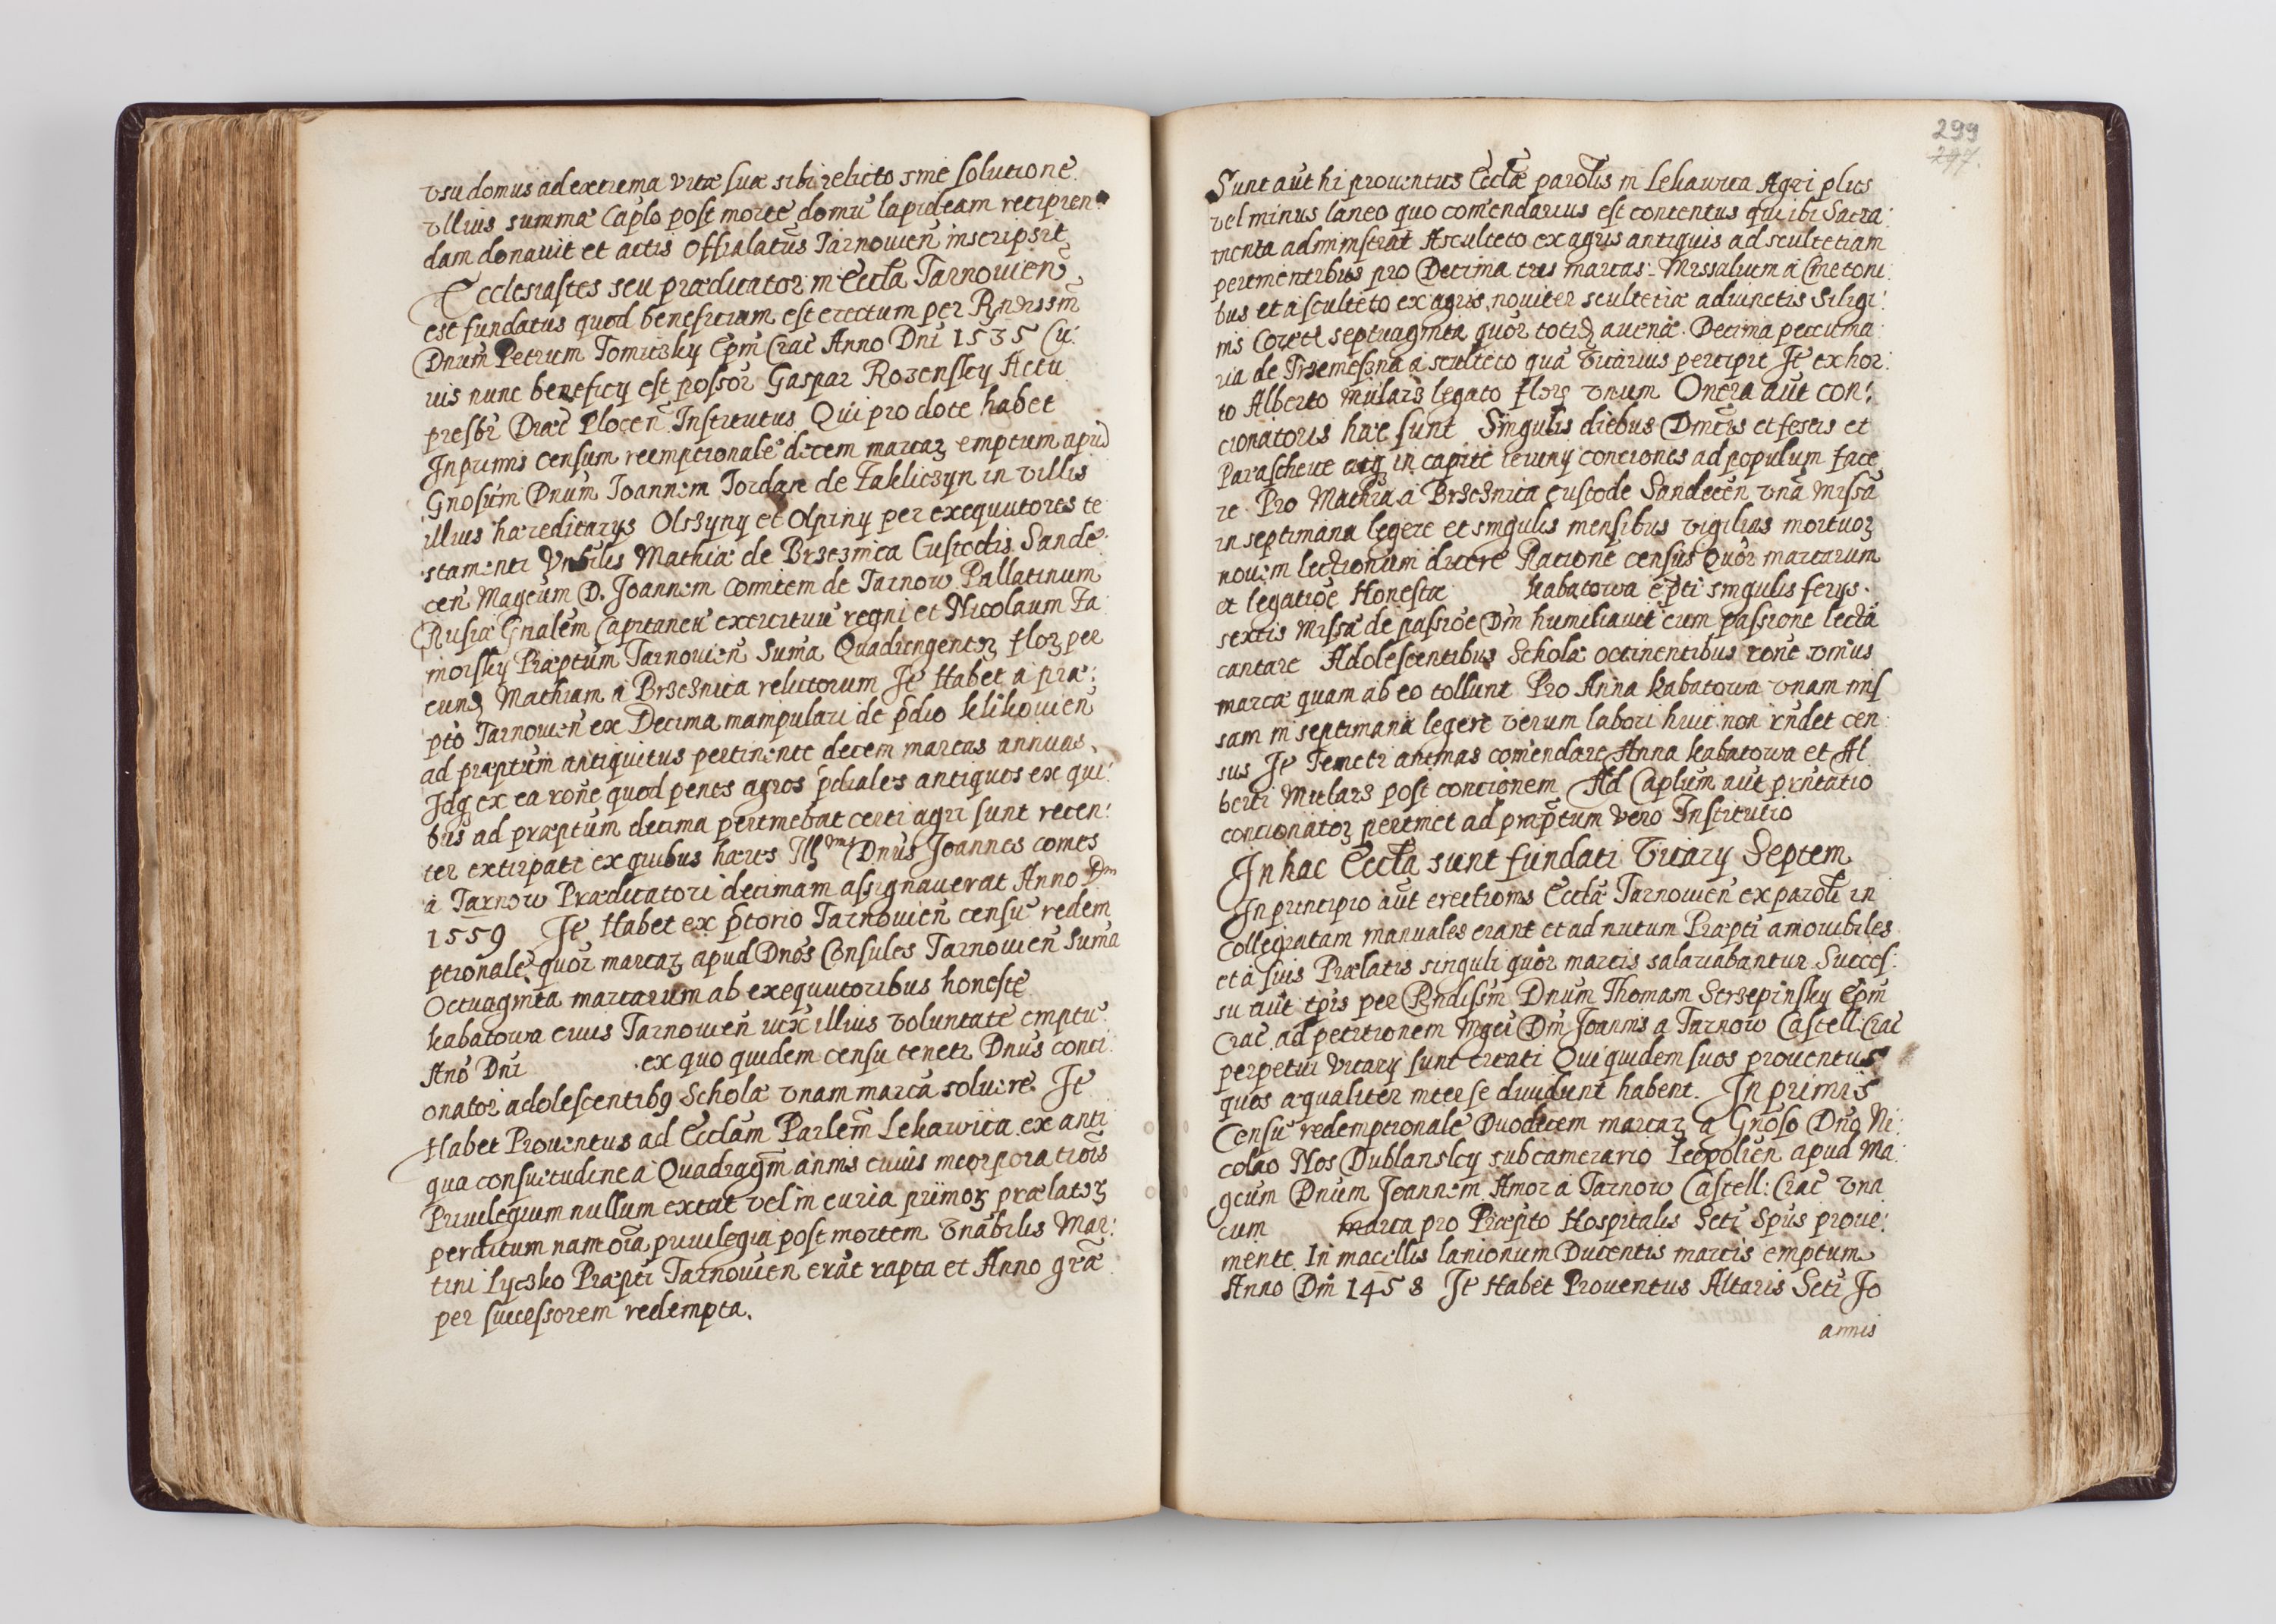 vsu domus ad extrema vitæ suæ sibi relicto sine solutione
vllius summæ Caplo post mortē domū lapideam recipien
dam donauit et actis Offialatūs Tarnouien̄ inscripsit
Ecclesiastes seu prædicator in Eccla Tarnouien̄
est fundatus quod beneficium est erectum per Rndissm̄
Dnum Petrum Tomiczky Epm̄ Crac̄ Anno Dni 1535 Cu:
ius nunc beneficy est possor Gaspar Rozenssky Actu
presbr Diæc̄ Plocen̄ Institutus Qui pro dote habet
Inprimis censum reemptionalē decem marcaꝝ emptum apud
Gnosum Dnum Joannem Jordan de Zakliczyn in villis
illius hæreditarys Olszyny et Olpiny per exequutores te
stamenti Vnbilis Mathiæ de Brzeznica Custodis Sande:
cen̄ Magcum D. Joannem Comitem de Tarnow Pallatinum
Rusiæ Gnalem Capitaneū exercituū regni et Nicolaum Za
moisky Præptum Tarnouien̄ Suma Quadringentoꝝ floꝝ per
eund Mathiam a Brzeznica relictorum Jt̄ Habet a præ:
pto Tarnouien̄ ex Decima manipulari de p̄dio Klikouien̄
ad præptum antiquitus pertinente decem marcas annuas
Jdq ex ea rōne quod penes agros p̄diales antiquos ex qui:
bus ad præptum decima pertinebat certi agri sunt recen:
ter extirpati ex quibus hæres Ill Dnus Joannes comes
a Tarnow Prædicatori decimam assignauerat Anno Dni
1559 Jt̄ Habet ex p̄torio Tarnouien̄ censū redem
ptionalē quor marcaꝝ apud Dnos Consules Tarnouien̄ Suma
Octuaginta marcarum ab exequutoribus honestæ
Kabatowa ciuis Tarnouien̄ iux illius voluntatē emptū
Ano Dni ex quo quidem censu tenetr Dnus conci
onator adolescentibꝰ Scholæ vnam marcā soluere. Jt̄
Habet Prouentus ad Ecclam Parlem̄ Lekawica ex anti
qua consuetudine a Quadragm̄ annis cuius incorporationis
Priuilegium nullum extat vel in curia priimoꝝ prælatoꝝ
perditum nam oīa priuilegia post mortem Vnabilis Mar:
tini Lyczko Præpti Tarnouien̄ erāt rapta et Anno grā
per successorem redempta.
299
297.
Sunt aut hi prouentus Ecclæ parolis in Lekawica Agri plus
vel minus laneo quo comendarius est contentus qui ibi Sacra:
menta administrat A sculteto ex agris antiquis ad scultetiam
pertinentibus pro Decima tres marcas. Missalium a Cmetoni
bus et a sculteto ex agris nouiter scultetiæ adiunctis Siligi:
nis Coreti septuaginta quor totid auenæ. Decima pecunia:
ria de Trzemeszna a sculteto quā Vicarius percipit Jt̄ ex hor:
to Alberto Mularz legato floꝝ vnum Onera aut con:
cionatoris hæc sunt Singulis diebus Dmcis et festis et
Parasceue atq in capite ieiuny conciones ad populum face
re Pro Mathia a Brzeznica custode Sandecen̄ vnā missā
in septimana legere et singulis mensibus vigilias mortuoꝝ
nouem lectionum dicere Ratione census quor marcarum
et legatiōe Honestæ Kabatowa epti singulis ferys
sextis Missā de passiōe Dni humiliauit cum passione lectā
cantare Adolescentibus Scholæ octinentibus rōne vnius
marcæ quam ab eo tollunt Pro Anna Kabatowa vnam mis
sam in septimana legere verum labori huic non rn̄det cen:
sus Jt̄ Tenetr animas comendare Anna Kabatowa et Al
berti Mularz post concionem Ad Caplum aut prntatio
concionatoꝝ pertinet ad præptum vero Institutio
In hac Eccla sunt fundati Vicary Septem
In principio aut erectionis Ecclæ Tarnouien̄ ex paroli in
Collegiatam manuales erant et ad nutum Præpti amouibiles
et a suis Prælatis singuli quor marcis salariabantur Succes:
su aut tpis per Rndissm̄ Dnum Thomam Strzepinsky Epm̄
Crac̄ ad petitionem Mgci Dni Joannis a Tarnow Castell: Crac̄
perpetui Vicary sunt creati Qui quidem suos prouentus
quos æqualiter inter se diuidunt habent. In primis
Censū redemptionalē Duodecem marcaꝝ a Gnoso Dno Ni:
colao Nos Dublansky subcamerario Leopolien̄ apud Ma:
gcum Dnum Joannem Amor a Tarnow Castell: Crac̄ vna
cum marca pro Præpto Hospitalis Scti Spūs proue:
niente. In macellis lanionum Ducentis marcis emptum
Anno Dni 1458 Jt̄ Habet Prouentus Altaris Scti Jo
annis